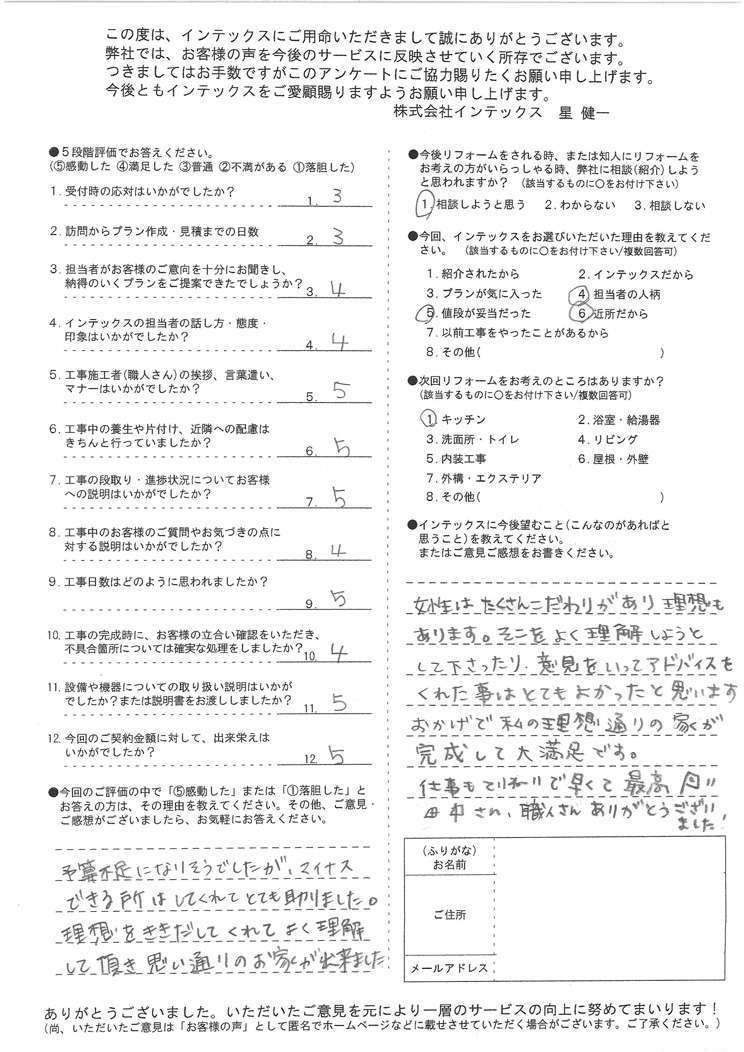 この度は、インテックスにご用命いただきまして誠にありがとうございます。
弊社では、お客様の声を今後のサービスに反映させていく所存でございます。
つきましてはお手数ですがこのアンケートにご協力賜りたくお願い申し上げます。
今後ともインテックスをご愛顧賜りますようお願い申し上げます。
株式会社インテックス 星 健一
●5段階評価でお答えください。
(⑤感動した ④満足した ③普通 ②不満がある ①落胆した)
1.受付時の応対はいかがでしたか?
1. 3
2.訪問からプラン作成・見積までの日数
2. 3
3.担当者がお客様のご意向を十分にお聞きし、
納得のいくプランをご提案できたでしょうか?
3. 4
4.インテックスの担当者の話し方・態度・
印象はいかがでしたか?
4. 4
5.工事施工者(職人さん)の挨拶、言葉遣い、
マナーはいかがでしたか?
5. 5
6.工事中の養生や片付け、近隣への配慮は
きちんと行っていましたか?
6. 5
7.工事の段取り・進捗状況についてお客様
への説明はいかがでしたか?
7. 5
8.工事中のお客様のご質問やお気づきの点に
対する説明はいかがでしたか?
8. 4
9.工事日数はどのように思われましたか?
9. 5
10.工事の完成時に、お客様の立合い確認をいただき、
不具合箇所については確実な処理をしましたか?
10. 4
11.設備や機器についての取り扱い説明はいかが
でしたか?または説明書をお渡ししましたか?
11. 5
12.今回のご契約金額に対して、出来栄えは
いかがでしたか?
12. 5
●今回のご評価の中で「⑤感動した」または「①落胆した」と
お答えの方は、その理由を教えてください。その他、ご意見・
ご感想がございましたら、お気軽にお答えください。
予算不足になりそうでしたが、マイナス
できる所はしてくれてとても助りました。
理想をききだしてくれてよく理解
して頂き思い通りのお家が出来ました
●今後リフォームをされる時、または知人にリフォームを
お考えの方がいらっしゃる時、弊社に相談(紹介)しよう
と思われますか? (該当するものに○をお付け下さい)
1.相談しようと思う 2.わからない 3.相談しない
●今回、インテックスをお選びいただいた理由を教えてくだ
さい。 (該当するものに○をお付け下さい/複数回答可)
1.紹介されたから 2.インテックスだから
3.プランが気に入った 4.担当者の人柄
5.値段が妥当だった 6.近所だから
7.以前工事をやったことがあるから
8.その他( )
●次回リフォームをお考えのところはありますか?
(該当するものに○をお付け下さい/複数回答可)
1.キッチン 2.浴室・給湯器
3.洗面所・トイレ 4.リビング
5.内装工事 6.屋根・外壁
7.外構・エクステリア
8.その他( )
●インテックスに今後望むこと(こんなのがあればと
思うこと)を教えてください。
またはご意見ご感想をお書きください。
女性はたくさんこだわりがあり理想も
あります。そこをよく理解しようと
して下さったり、意見をいってアドバイスを
くれた事はとてもよかったと思います
おかげで私の理想通りの家が
完成して大満足です。
仕事もていねいで早くて最高
職人さんありがとうござい
ました!
(ふりがな)
お名前
ご住所
メールアドレス
ありがとうございました。いただいたご意見を元により一層のサービスの向上に努めてまいります!
(尚、いただいたご意見は「お客様の声」として匿名でホームページなどに載せさせていただく場合がございます。ご了承ください。)